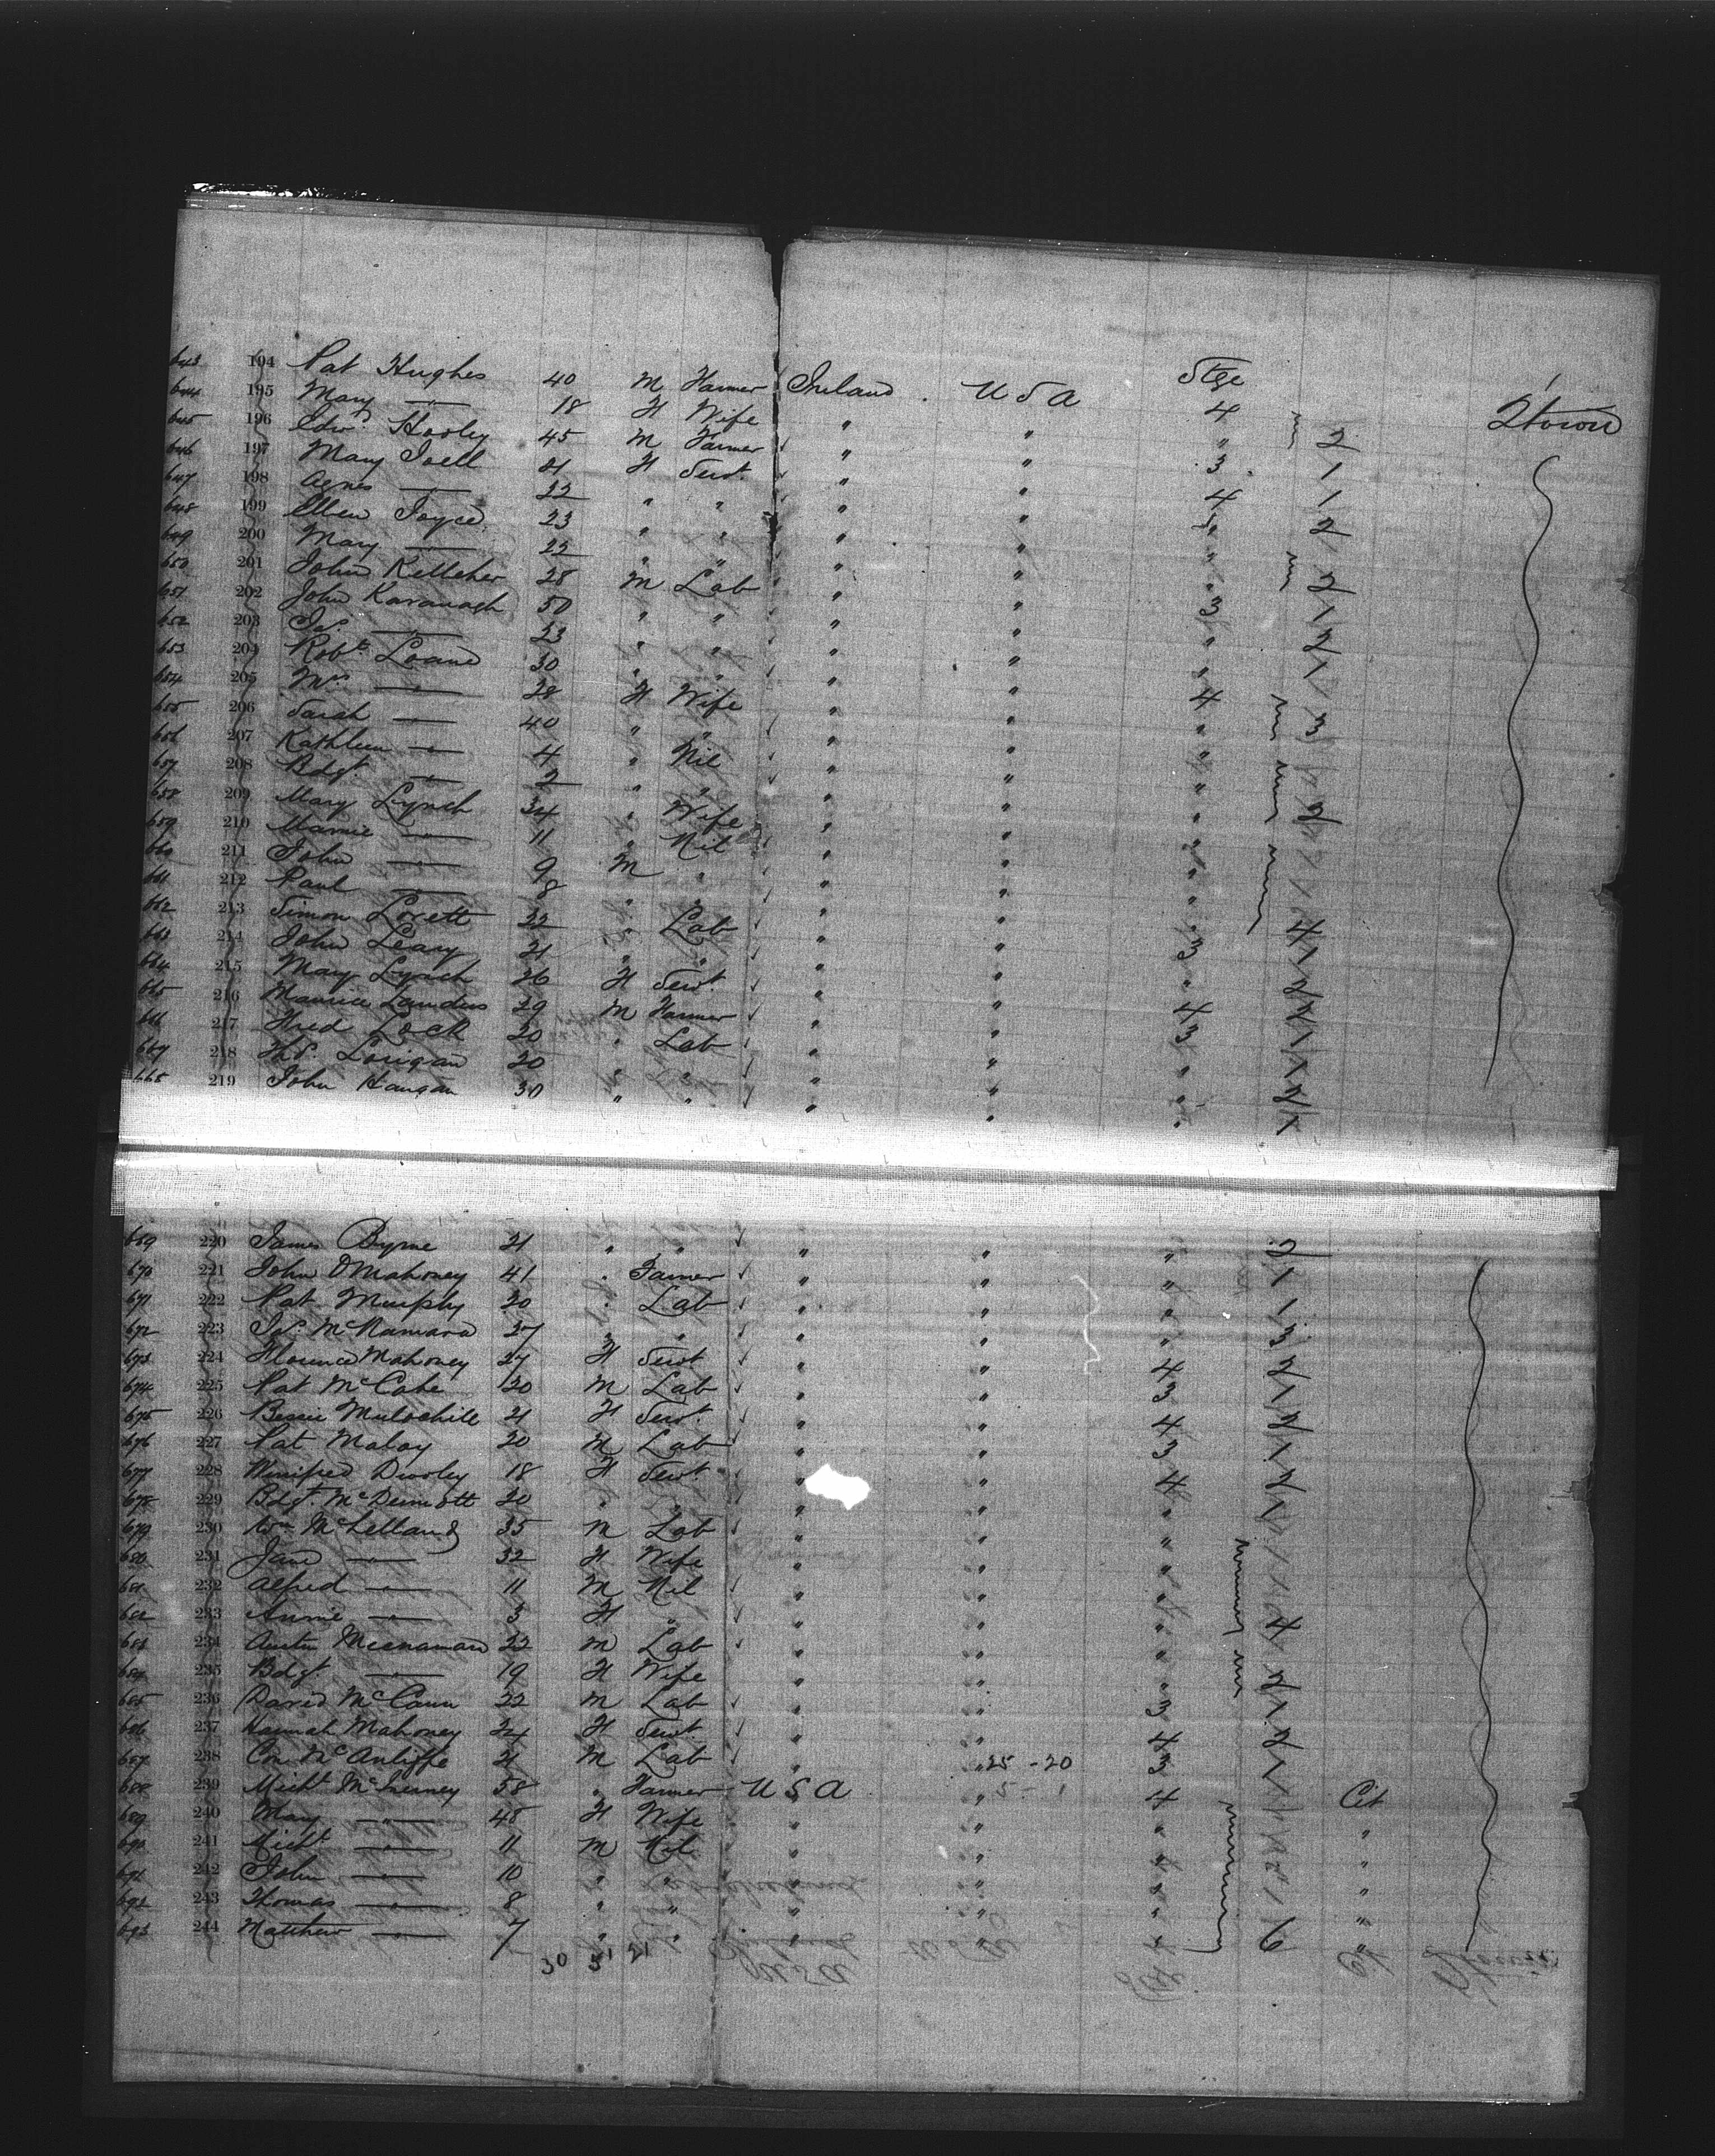 643 194 Pat Hughes 40 M Farmer Ireland U S A Stge 4 2town
644 195 Mary —"— 18 F Wife " " " 2
645 196 Edwd Hooley 45 M Farmer " " 3 1
646 197 Mary Joell 21 F Servt. " " 4 1
647 198 Agnes —"— 22 " " " " " 2
648 199 Ellen Joyce 23 " " " " "
649 200 Mary —"— 22 " " " " " 2
650 201 John Kelleher 28 M Lab " " 3 1
651 202 John Kavanagh 50 " " " " " 2
652 203 Jas —"— 23 " " " " " 1
653 204 Robt. Loane 30 " " " " 4
654 205 Mrs —"— 28 F Wife " " "
655 206 Sarah —"— 40 " " " " " 3
656 207 Kathleen —"— 4 " Nil " " "
657 208 Bdgt. —"— 2 " " " " "
658 209 Mary Lynch 34 " Wife " " "
659 210 Mamie —"— 11 " Nil " " "
660 211 John —"— 9 M " " " "
661 212 Paul —"— 8 " " " " " 4
662 213 Simon Lovett 22 " Lab " " 3 1
663 214 John Leary 21 " " " " " 2
664 215 Mary Lynch 26 F Servt. " " 4 2
665 216 Maurice Landers 29 M Farmer " " 3 1
666 217 Fred Lock 20 " Lab " " " 1
667 218 Thos. Lorigan 20 " " " " " 2
668 219 John Hangan 30 " " " " " 1
669 220 James Byrne 21 " " " " " 2
670 221 John O'Mahoney 41 " Farmer " " " 1
671 222 Pat Murphy 20 " Lab " " " 1
672 223 Jas. McNamara 27 " " " " " 3
673 224 Florence Mahoney 27 F Servt " " 4 2
674 225 Pat McCabe 20 M Lab " " 3 1
675 226 Bessie Mulochill 21 F Servt. " " 4 2
676 227 Pat Maloy 20 M Lab " " 3 1
677 228 Winifred Dooley 18 F Servt. " " 4 2
678 229 Bdgt. McDermott 20 " " " " 1
679 230 Wm McLelland 35 M Lab " " "
680 231 Jane —"— 32 F Wife " " "
681 232 Alfred —"— 11 M Nil " " "
682 233 Annie —"— 3 F " " " " 4
683 234 Austin 22 M Lab " " "
684 235 Bdgt —"— 19 F Wife " " " 2
685 236 David McCann 22 M Lab " " 3 1
686 237 Hannah Mahoney 24 F Servt. " " 4 2
687 238 Con McAuliffe 21 M Lab " " 25 - 20 3 1
688 239 Michl McInerney 58 " Farmer U S A " 4 Cit
689 240 Mary —"— 48 F Wife " " " "
690 241 Michl —"— 11 M Nil " " " "
691 242 John —"— 10 " " " " " "
692 243 Thomas —"— 8 " " " " "
693 244 Matthew —"— 7 " " " " " 6 "
30 31 21